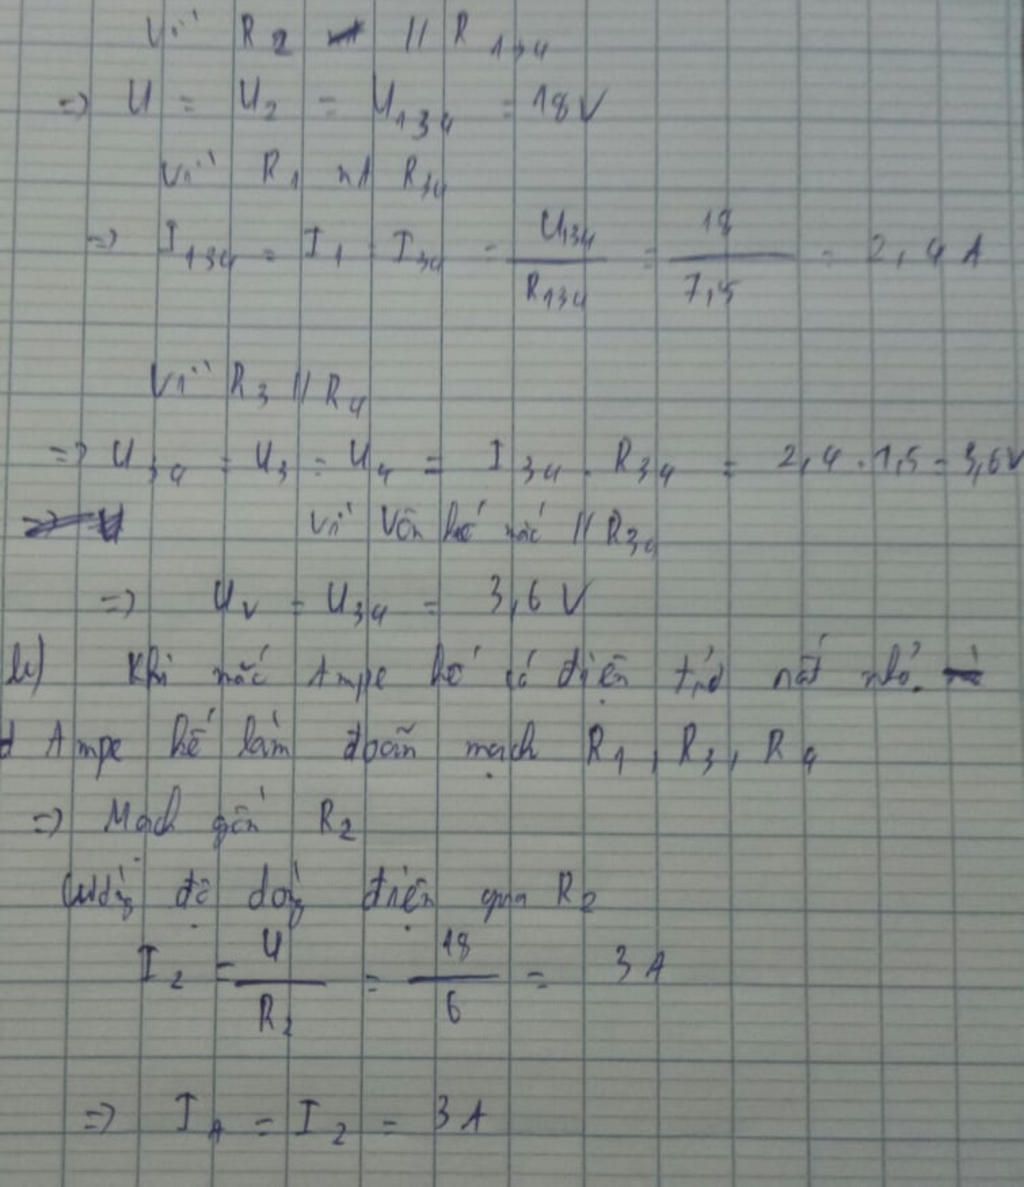 Vì R2 // R134
=> U = U2 = U134 = 18V
Vì R1 nt R34
=> I134 = I1 = I34 = U134/R134 = 18/7,5 = 2,4 A
Vì R3 // R4
=> U34 = U3 = U4 = I34 . R34 = 2,4 . 1,5 = 3,6V
Vì Vôn kế mắc // R34
=> Uv = U34 = 3,6 V
b) Khi mắc Ampe kế có điện trở rất nhỏ.
Ampe kế làm đoản mạch R1, R3, R4
=> Mạch gồm R2
Cường độ dòng điện qua R2
I2 = U/R2 = 18/6 = 3 A
=> IA = I2 = 3 A